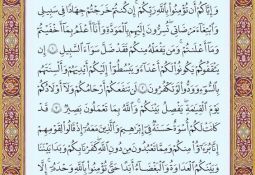 وَإِيَّاكُمْ أَن تُؤْمِنُوا۟ بِٱللَّهِ رَبِّكُمْ إِن كُنتُمْ خَرَجْتُمْ جِهَـٰدًا فِى سَبِيلِى
وَٱبْتِغَآءَ مَرْضَاتِى تُسِرُّونَ إِلَيْهِم بِٱلْمَوَدَّةِ وَأَنَا۠ أَعْلَمُ بِمَآ أَخْفَيْتُمْ
وَمَآ أَعْلَنتُمْ وَمَن يَفْعَلْهُ مِنكُمْ فَقَدْ ضَلَّ سَوَآءَ ٱلسَّبِيلِ ١ إِن
يَثْقَفُوكُمْ يَكُونُوا۟ لَكُمْ أَعْدَآءً وَيَبْسُطُوٓا۟ إِلَيْكُمْ أَيْدِيَهُمْ وَأَلْسِنَتَهُم
بِٱلسُّوٓءِ وَوَدُّوا۟ لَوْ تَكْفُرُونَ ٢ لَن تَنفَعَكُمْ أَرْحَامُكُمْ وَلَآ أَوْلَـٰدُكُمْ
يَوْمَ ٱلْقِيَـٰمَةِ يَفْصِلُ بَيْنَكُمْ وَٱللَّهُ بِمَا تَعْمَلُونَ بَصِيرٌ ٣ قَدْ
كَانَتْ لَكُمْ أُسْوَةٌ حَسَنَةٌ فِىٓ إِبْرَٰهِيمَ وَٱلَّذِينَ مَعَهُۥٓ إِذْ قَالُوا۟ لِقَوْمِهِمْ
إِنَّا بُرَءَٰٓؤُا۟ مِنكُمْ وَمِمَّا تَعْبُدُونَ مِن دُونِ ٱللَّهِ كَفَرْنَا بِكُمْ وَبَدَا بَيْنَنَا
وَبَيْنَكُمُ ٱلْعَدَٰوَةُ وَٱلْبَغْضَآءُ أَبَدًا حَتَّىٰ تُؤْمِنُوا۟ بِٱللَّهِ وَحْدَهُۥٓ إِلَّا